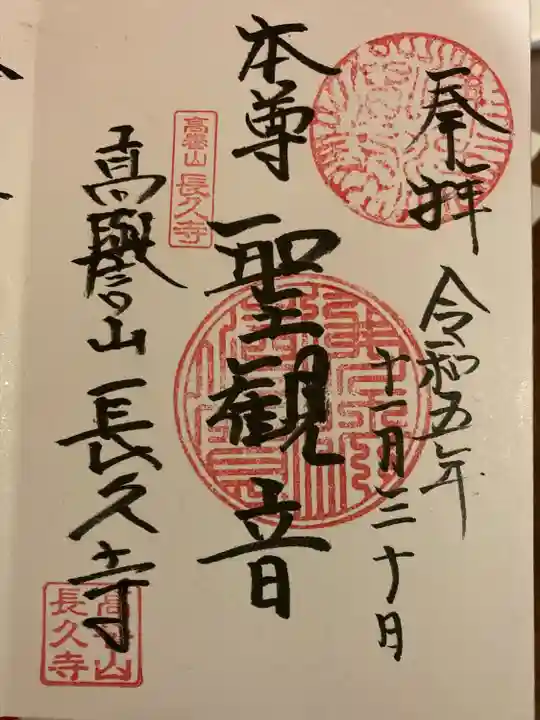 奉拝
令和五年
十一月三十日
本尊
聖観音
高誉山
長久寺
高誉山 長久寺
高誉山
長久寺